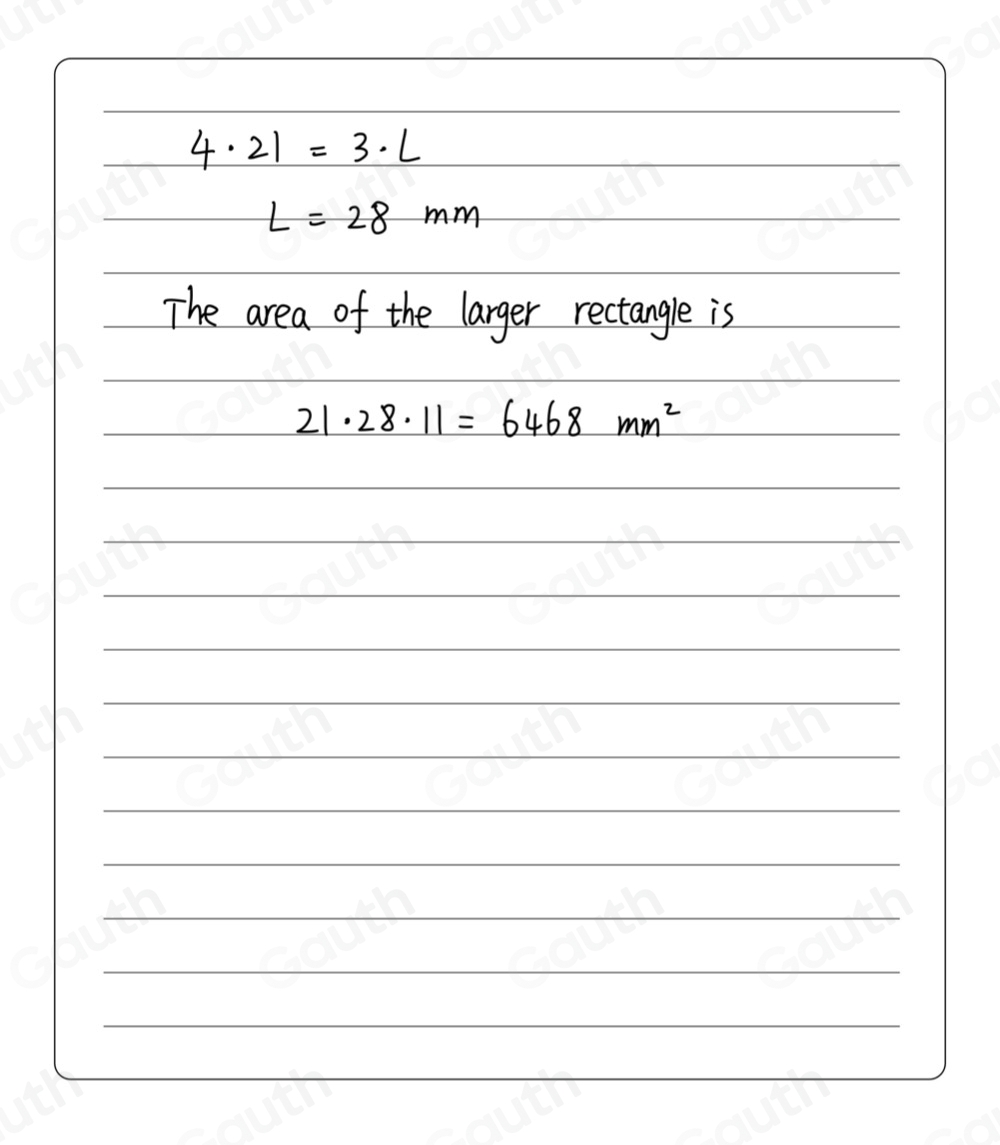 4 · 21 = 3 · L
L = 28 mm
The area of the larger rectangle is
21 · 28 · 11 = 6468 mm²